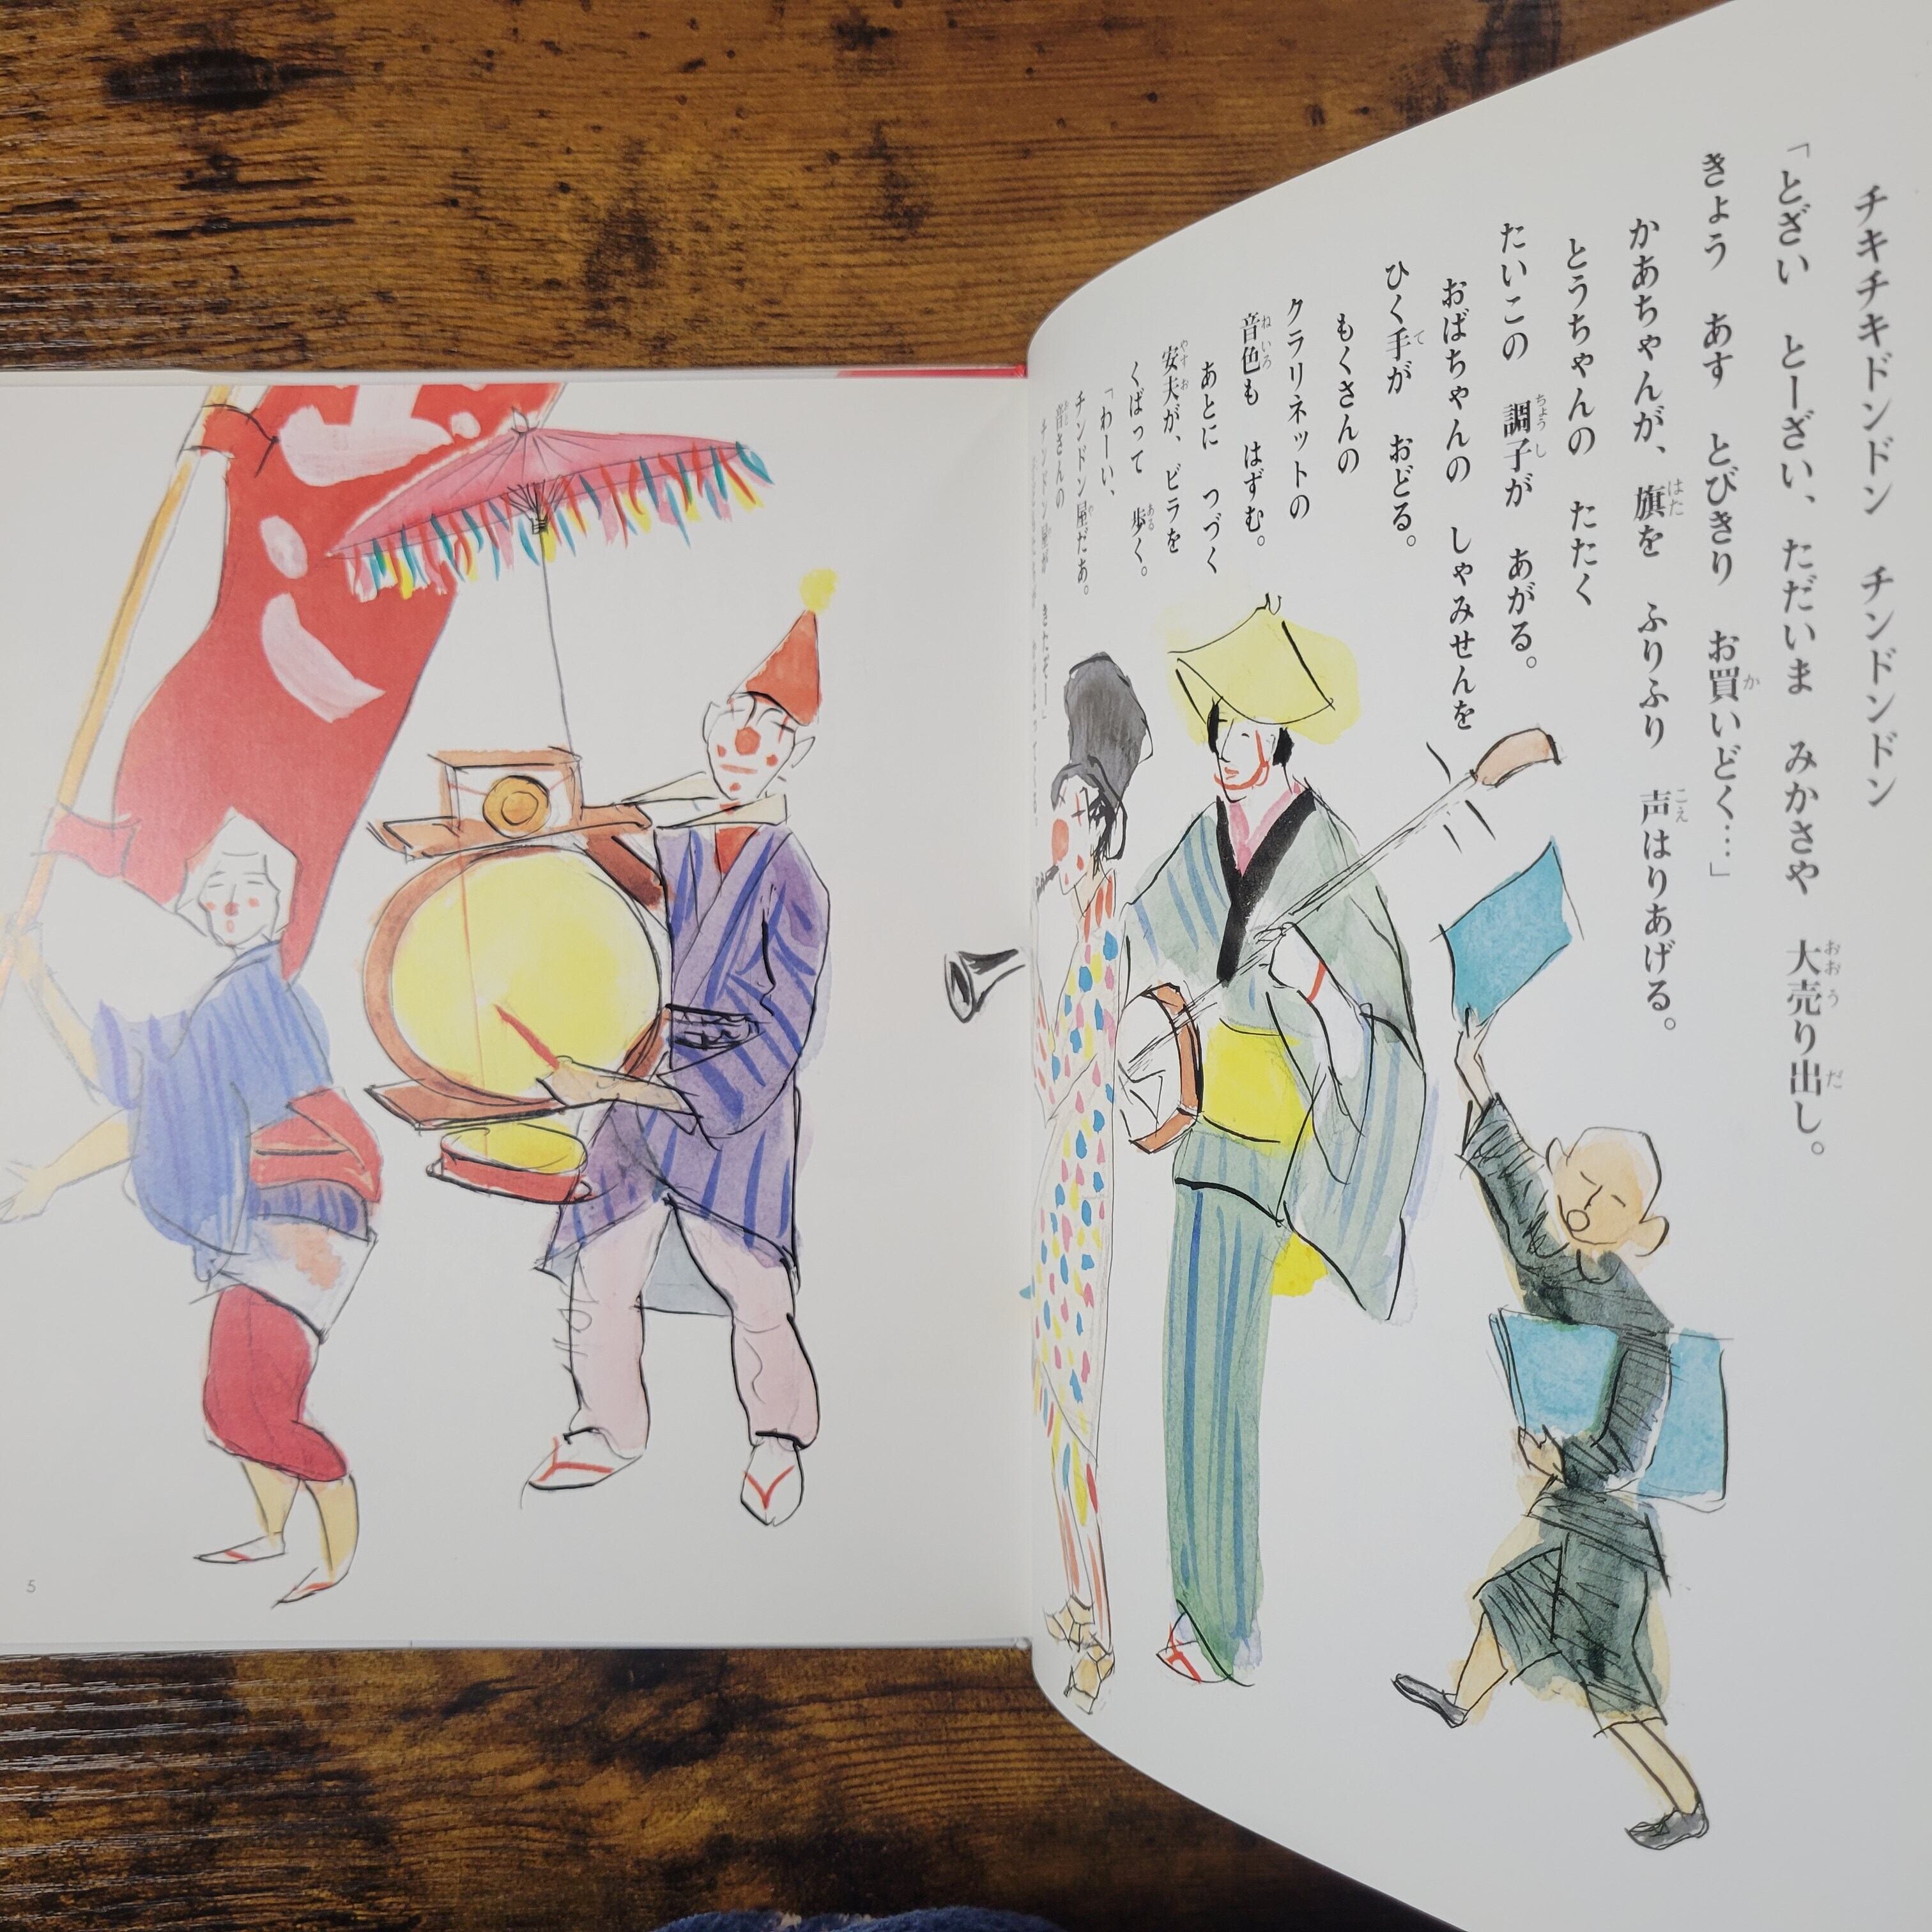 チキチキドンドン　チンドンドン
「とざい　とーざい、ただいま　みかさや　大売り出し。
きょう　あす　とびきり　お買いどく…」
かあちゃんが、旗を　ふりふり　声はりあげる。
とうちゃんの　たたく
たいこの　調子が　あがる。
おばちゃんの　しゃみせんを
ひく手が　おどる。
もくさんの
クラリネットの
音色も　はずむ。
あとに　つづく
安夫が、ビラを
くばって　歩く。
「わーい、
チンドン屋だあ。
音さんの
チンドン屋が　きたぞー」
5